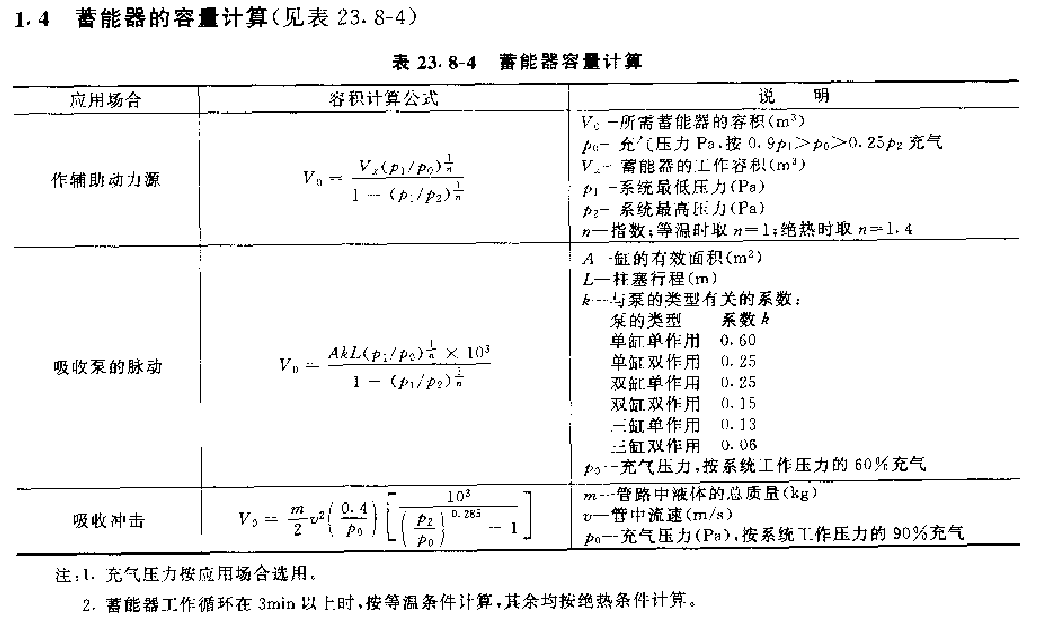 1.4 蓄能器的容量计算(见表 23.8-4)
表 23.8-4 蓄能器容量计算
应用场合 容积计算公式 说 明
作辅助动力源
V₀ = Vₓ(p₁/p₀)^(1/n) / (1 − (p₁/p₂)^(1/n))
V₀—所需蓄能器的容积(m³)
p₀—充气压力 Pa,按 0.9p₁>p₀>0.25p₂ 充气
Vₓ—蓄能器的工作容积(m³)
p₁—系统最低压力(Pa)
p₂—系统最高压力(Pa)
n—指数;等温时取 n=1;绝热时取 n=1.4
吸收泵的脉动
V₀ = AkL(p₁/p₀)^(1/n) × 10³ / (1 − (p₁/p₂)^(1/n))
A—缸的有效面积(m²)
L—柱塞行程(m)
k—与泵的类型有关的系数:
泵的类型 系数 k
单缸单作用 0.60
单缸双作用 0.25
双缸单作用 0.25
双缸双作用 0.15
三缸单作用 0.13
三缸双作用 0.06
p₀—充气压力,按系统工作压力的 60%充气
吸收冲击
V₀ = (m/2)v²(0.4/p₀)[10³ / ((p₂/p₀)^0.285 − 1)]
m—管路中液体的总质量(kg)
v—管中流速(m/s)
p₀—充气压力(Pa),按系统工作压力的 90%充气
注:1. 充气压力按应用场合选用。
2. 蓄能器工作循环在 3min 以上时,按等温条件计算,其余均按绝热条件计算。